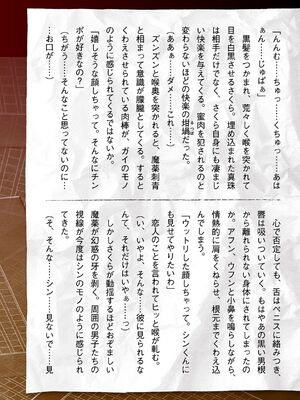 「んんむ……ちゅっ……くちゅっ……あは
ぁん……じゅぱぁ」
　黒髪をつかまれ、荒々しく喉を突かれて
目を白黒させるさくら。埋め込まれた真珠
は相手だけでなく、さくら自身にも凄まじ
い快楽を与えてくる。蜜肉を犯されるのと
変わらないほどの快楽の坩堝だった。
（あああ……ダメ……これ……）
　ズンズンと喉奥を突かれると、魔薬刺青
と相まって意識が朦朧としてくる。すると
くわえさせられている肉棒が、ガイのモノ
のように感じられてくるではないか。
「嬉しそうな顔しちゃって。そんなにチン
ポが好きなの？」
（ちがう……そんなこと思ってないのに…
…お口が……）
　心で否定しても、舌はペニスに絡みつき、
唇は吸いついていく。もはやあの黒い男根
から離れられない身体にされてしまったの
か。アフン、ウフンと小鼻を鳴らしながら、
情熱的に肩をくねらせ、根元までくわえ込
んでしまう。
「ウットリした顔しちゃって。シンくんに
も見せてやりたいわ」
　恋人のことを言われてヒッと喉が軋む。
（い、いやよ、そんな……彼に見られるな
んて、それだけはいやぁ……っ）
　しかしさくらが動揺するほどおぞましい
魔薬が幻惑の牙を剥く。周囲の男子たちの
視線が今度はシンのモノのように感じられ
てきた。
（そ、そんな……シン……見ないで……見